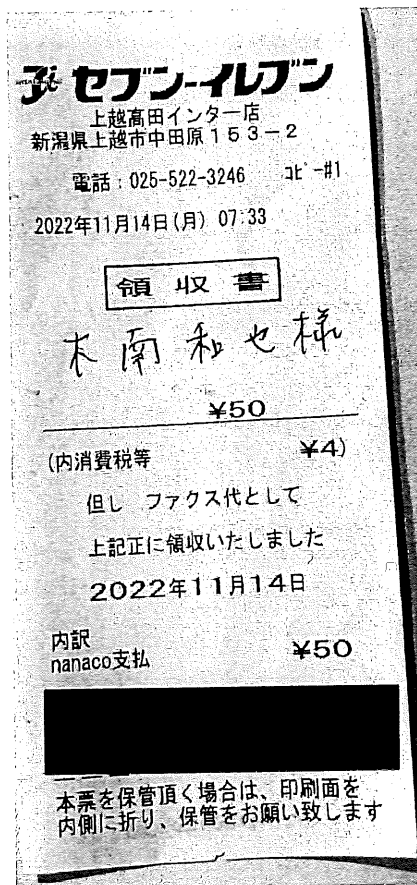 セブン-イレブン
上越高田インター店
新潟県上越市中田原153-2
電話:025-522-3246 コピー#1
2022年11月14日(月) 07:33
領収書
木南和也様
¥50
(内消費税等 ¥4)
但し ファクス代として
上記正に領収いたしました
2022年11月14日
内訳
nanaco支払 ¥50
本票を保管頂く場合は、印刷面を
内側に折り、保管をお願い致します